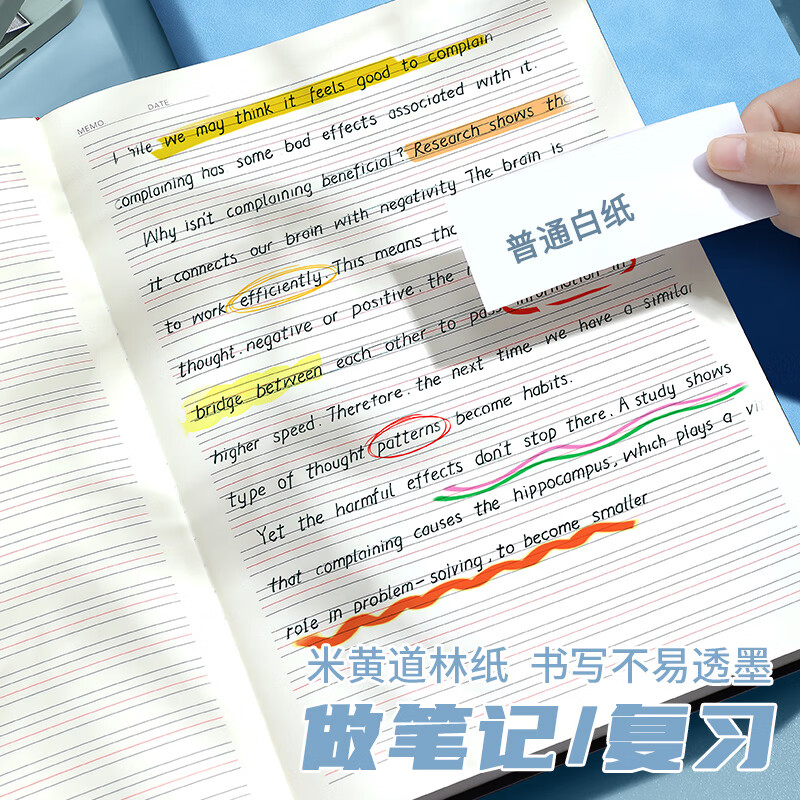 MEMO
DATE
we may think it feels good to complain
complaining has some bad effects associated with it.
Why isn't complaining beneficial? Research shows
it connects our brain with negativity The brain is
to work efficiently. This means
普通白纸
thought. negative or positive. the
bridge between each other to pass information in
higher speed. Therefore. the next time we have a similar
type of thought patterns become habits.
Yet the harmful effects don't stop there. A study shows
that complaining causes the hippocampus, which plays a
role in problem-solving, to become smaller
米黄道林纸 书写不易透墨
做笔记/复习